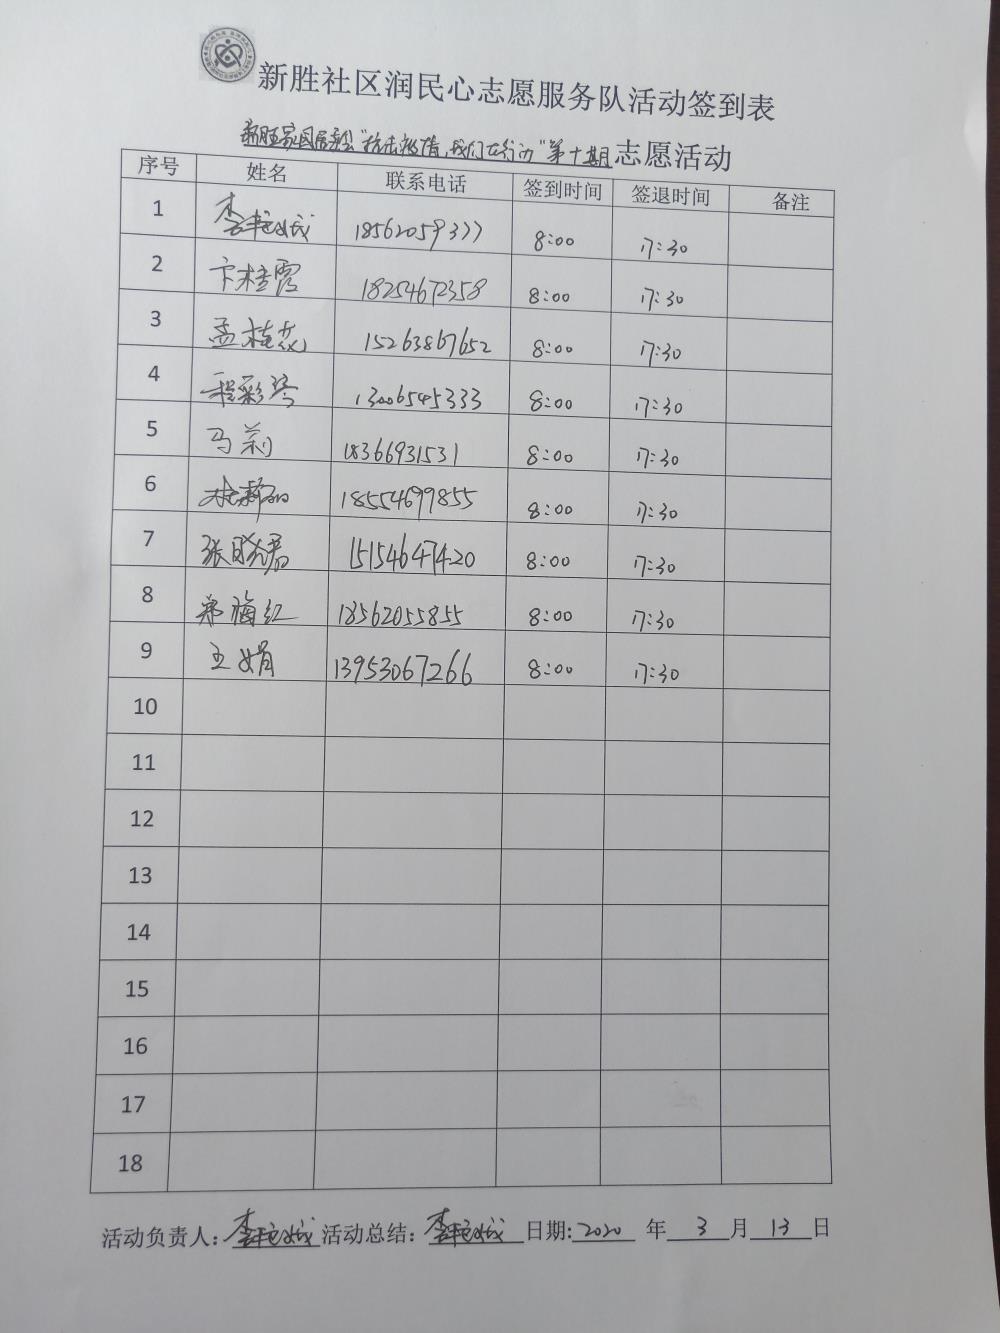 新胜社区润民心志愿服务队活动签到表
新旺家园居委会"抗击疫情,我们在行动"第十期志愿活动
序号 姓名 联系电话 签到时间 签退时间 备注
1 李艳斌 18562059377 8:00 17:30
2 卞桂霞 18254672358 8:00 17:30
3 孟桂花 15263867652 8:00 17:30
4 程彩琴 13006545333 8:00 17:30
5 马莉 18366931531 8:00 17:30
6 18554699855 8:00 17:30
7 张晓君 15154647420 8:00 17:30
8 郑海红 18562055855 8:00 17:30
9 王娟 13953067266 8:00 17:30
10
11
12
13
14
15
16
17
18
活动负责人: 活动总结: 日期:2020 年 3 月 13 日